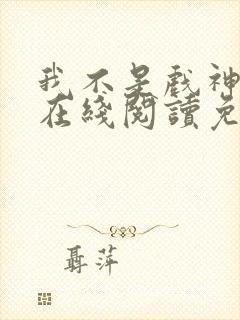 我不是戲神
在綫閱讀免
聶萍